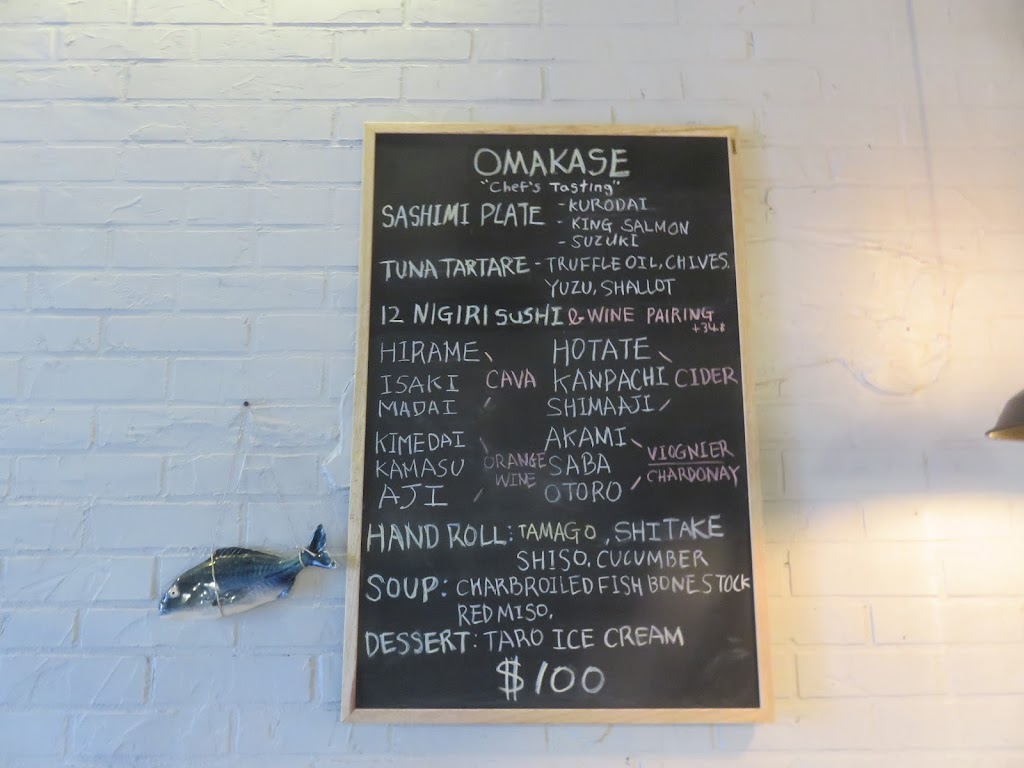 OMAKASE
"Chef's Tasting"
SASHIMI PLATE - KURODAI
- KING SALMON
- SUZUKI
TUNA TARTARE - TRUFFLE OIL, CHIVES,
YUZU, SHALLOT
12 NIGIRI SUSHI & WINE PAIRING
HIRAME
ISAKI
MADAI
CAVA
HOTATE
KANPACHI
SHIMAAJI
CIDER
KIMEDAI
KAMASU
AJI
ORANGE
WINE
AKAMI
SABA
OTORO
VIOGNIER
CHARDONAY
HAND ROLL: TAMAGO, SHITAKE
SHISO, CUCUMBER
SOUP: CHARBROILED FISH BONE STOCK
RED MISO,
DESSERT: TARO ICE CREAM
$100